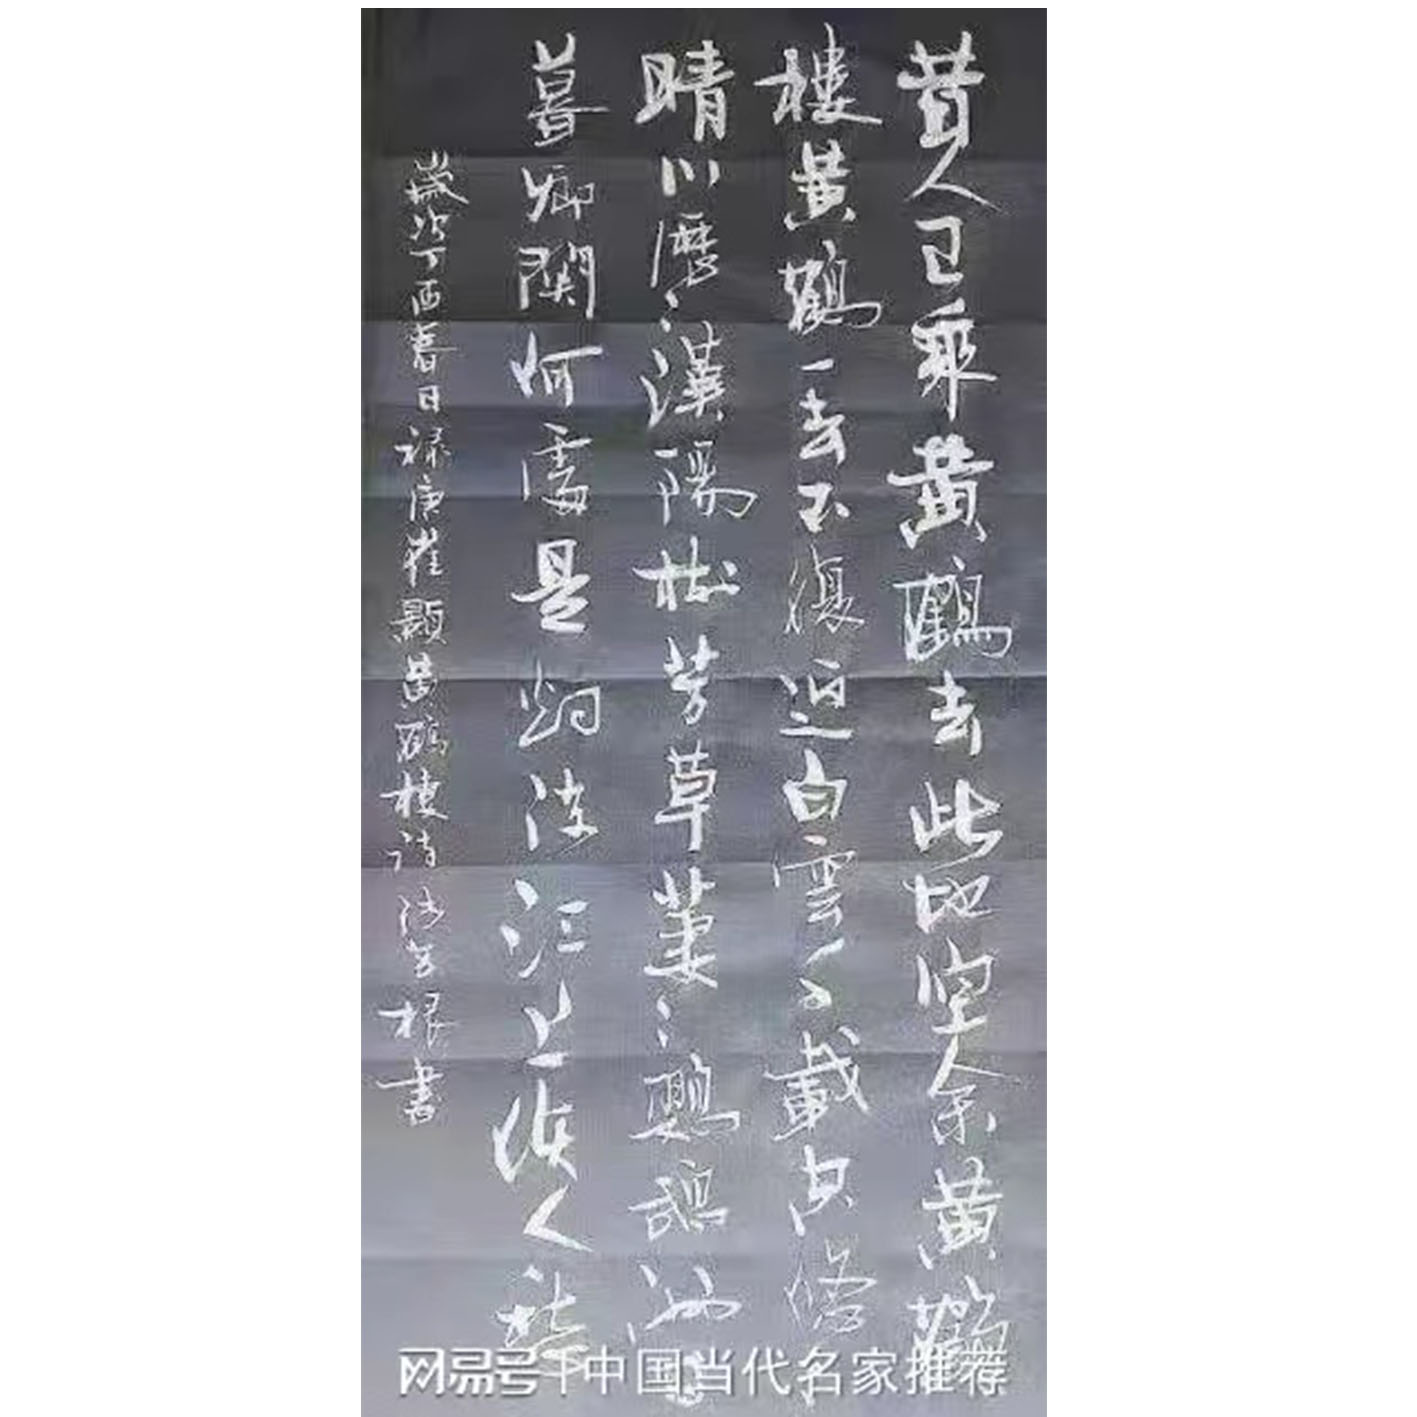 昔人已乘黄鶴去此地空余黄鶴
樓黄鶴一去不復返白雲千載空悠
晴川歷々漢陽樹芳草萋々鸚鵡洲日
暮鄉關何處是烟波江上使人愁
歲次丁酉春日禄唐崔顥黄鶴樓詩 根書
网易号 | 中国当代名家推荐